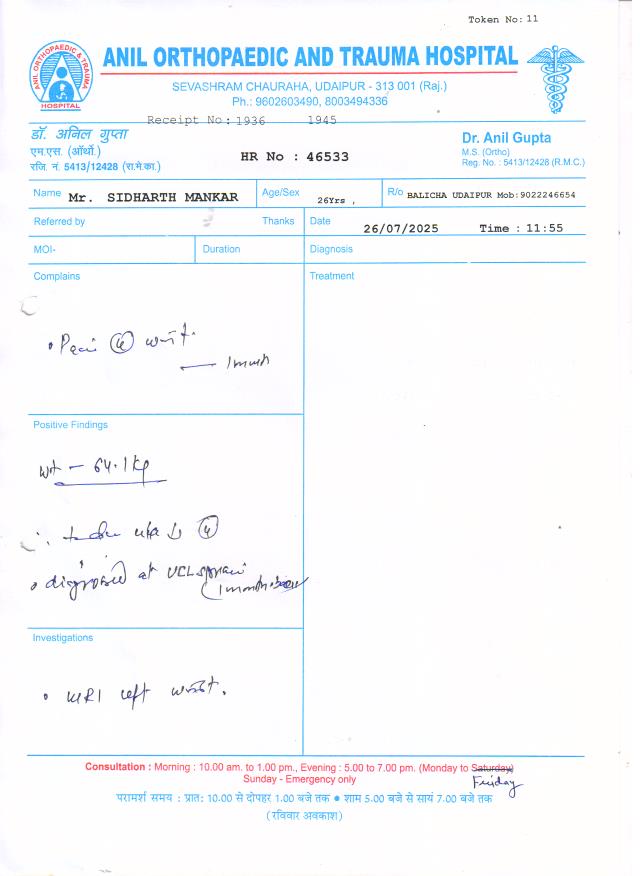 Token No: 11
ANIL ORTHOPAEDIC & TRAUMA
HOSPITAL
ANIL ORTHOPAEDIC AND TRAUMA HOSPITAL
SEVASHRAM CHAURAHA, UDAIPUR - 313 001 (Raj.)
Ph.: 9602603490, 8003494336
Receipt No: 1936 1945
डॉ. अनिल गुप्ता
एम.एस. (ऑर्थो.)
रजि. नं. 5413/12428 (रा.मे.का.)
HR No : 46533
Dr. Anil Gupta
M.S. (Ortho)
Reg. No. : 5413/12428 (R.M.C.)
Name Mr. SIDHARTH MANKAR
Age/Sex 26Yrs ,
R/o BALICHA UDAIPUR Mob:9022246654
Referred by Thanks
Date 26/07/2025 Time : 11:55
MOI-
Duration
Diagnosis
Complains
Treatment
• Pain (L) wrist.
— 1 month
Positive Findings
Wt – 64.1 kg
(L)
• diagnosed at UCL sprain
(1 month
Investigations
• MRI left wrist.
Consultation : Morning : 10.00 am. to 1.00 pm., Evening : 5.00 to 7.00 pm. (Monday to Saturday)
Friday
Sunday - Emergency only
परामर्श समय : प्रातः 10.00 से दोपहर 1.00 बजे तक ● शाम 5.00 बजे से सायं 7.00 बजे तक
(रविवार अवकाश)